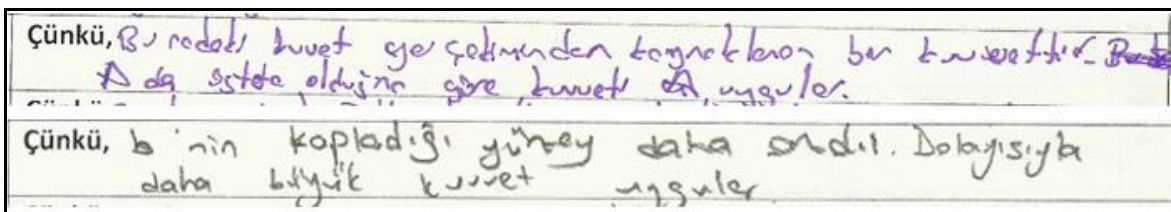 Çünkü, Buradaki kuvvet yer çekiminden kaynaklanan bir kuvvettir.
A da üstte olduğuna göre kuvveti A uygular.
Çünkü, b'nin kapladığı yüzey daha
daha büyük kuvvet uygular